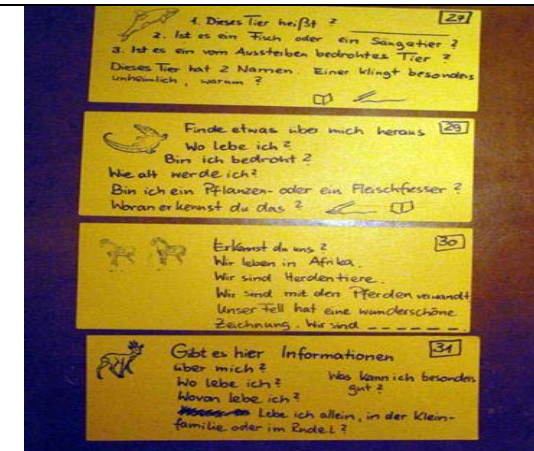 1. Dieses Tier heißt ? 27
2. Ist es ein Fisch oder ein Säugetier ?
3. Ist es ein vom Aussterben bedrohtes Tier ?
Dieses Tier hat 2 Namen. Einer klingt besonders
unheimlich, warum ?
Finde etwas über mich heraus 29
Wo lebe ich ?
Bin ich bedroht ?
Wie alt werde ich ?
Bin ich ein Pflanzen- oder ein Fleischfresser ?
Woran erkennst du das ?
Erkennst du uns ? 30
Wir leben in Afrika.
Wir sind Herdentiere.
Wir sind mit den Pferden verwandt
Unser Fell hat eine wunderschöne
Zeichnung. Wir sind _ _ _ _ _ _.
Gibt es hier Informationen 31
über mich ?
Wo lebe ich ? Was kann ich besonders
gut ?
Wovon lebe ich ?
Lebe ich allein, in der Klein-
familie oder im Rudel ?